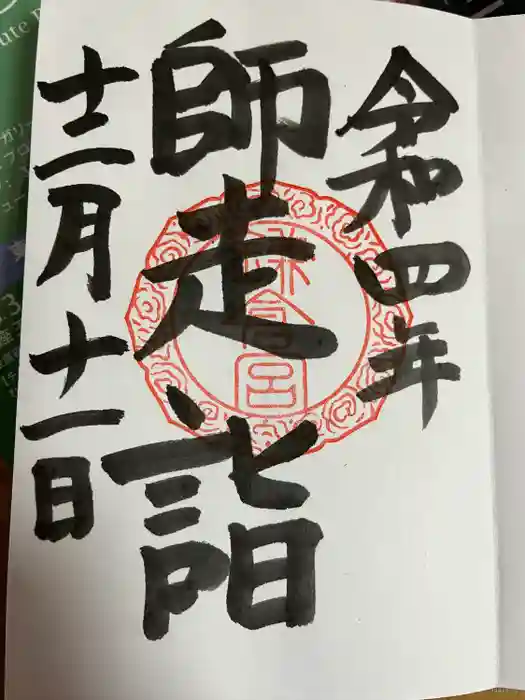 令和四年
師走詣
十二月十一日